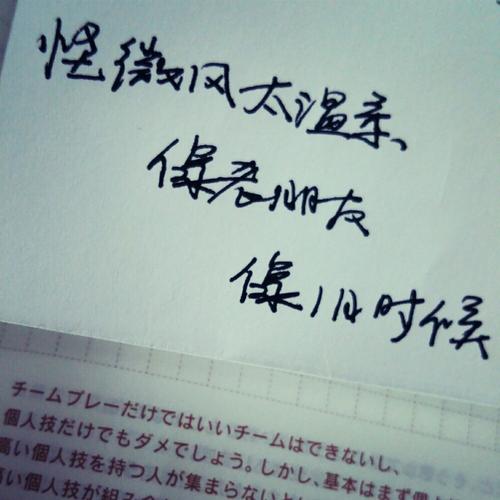 怪微风太温柔、
像老朋友
像旧时候
チームプレーだけではいいチームはできないし、
個人技だけでもダメでしょう。しかし、基本はまず
高い個人技を持つ人が集まらない
高い個人技が組み